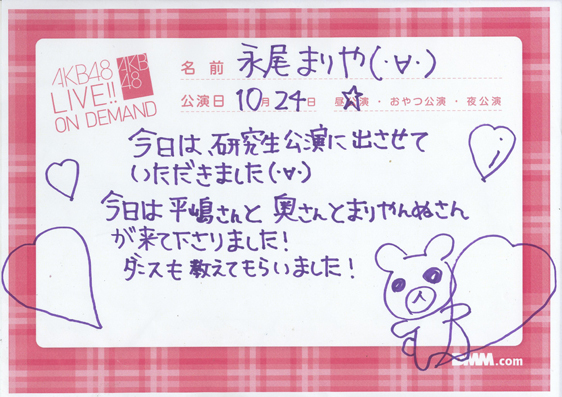 AKB48
LIVE!!
ON DEMAND
AKB
48
名前 永尾まりや(・∀・)
公演日 10月24日 ☆昼公演・おやつ公演・夜公演
今日は、研究生公演に出させて
いただきました(・∀・)
今日は平嶋さんと奥さんとまりやんぬさん
が来て下さりました!
ダンスも教えてもらいました!
DMM.com